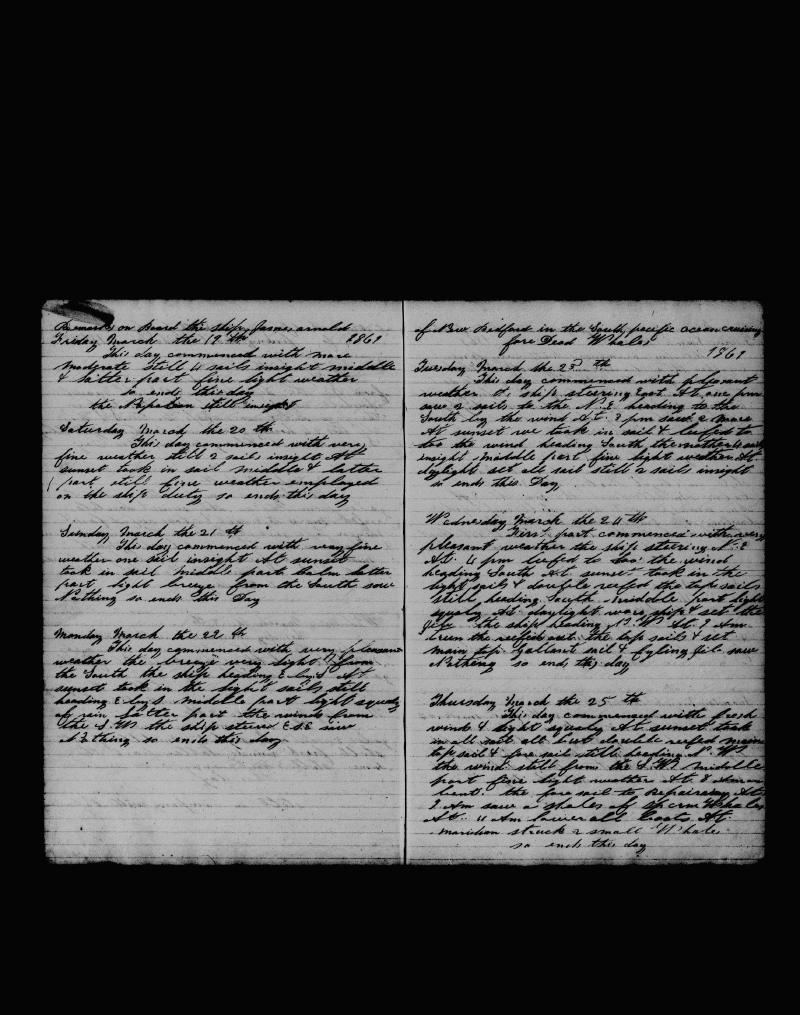 Remarks on Board the ship James arnold
Friday March the 19th 1869
This day commenced with more
moderate still 4 sails insight middle
& latter part fine light weather
so ends this day
the Napolean still insight
Saturday March the 20th
This day commenced with very
fine weather still 2 sails insight At
sunset took in sail middle & latter
part still fine weather employed
on the ship duty so ends this day
Sunday March the 21th
This day commenced with very fine
weather one sail insight At sunset
took in sail middle part calm latter
part light breeze from the South saw
Nothing so ends this Day
Monday March the 22th
This day commenced with very pleasant
weather the breeze very light from
the South the ship heading E by S At
sunset took in the light sails still
heading E by S middle part light squaly
of rain latter part the winds from
the S.W the ship steered ENE saw
Nothing so ends this day
of New Bedford in the South pacific ocean cruising
fore Dead Whales
1869
Tuesday March the 23th
This day commenced with pleasant
weather the ship steering East At one pm
saw 2 sails to the N.E heading to the
South by the wind At. 3 pm saw 2 more
At sunset we took in sail & luefed to
too the wind heading South the mother 4 sails
insight middle part fine light weather At.
dylight set all sail still 2 sails insight
so ends this Day
Wednesday March the 24th
First part commenced with very
pleasant weather the ship steering N.E
At. 4 pm luefed to too the wind
heading South At sunset took in the
light sails & double reefed the top sails
still heading South middle part light
squaly At daylight wore ship & set the
jib the ship heading N.W At. 9 Am
turn the reefed out the top sails & set
main top gallant sail & flying jib saw
Nothing so ends this day
Thursday March the 25th
This day commenced with fresh
wind & light squaly At sunset took
in all sail all but double reefed main
top sail & fore sail still heading N.W
the wind still from the S.W. middle
part fine light weather At. 8 Am un
bent the fore sail to Repairing At
9 Am saw a shales of sperm Whales
At. 11 Am lower all boats At.
maridian struck 2 small Whales
so ends this day